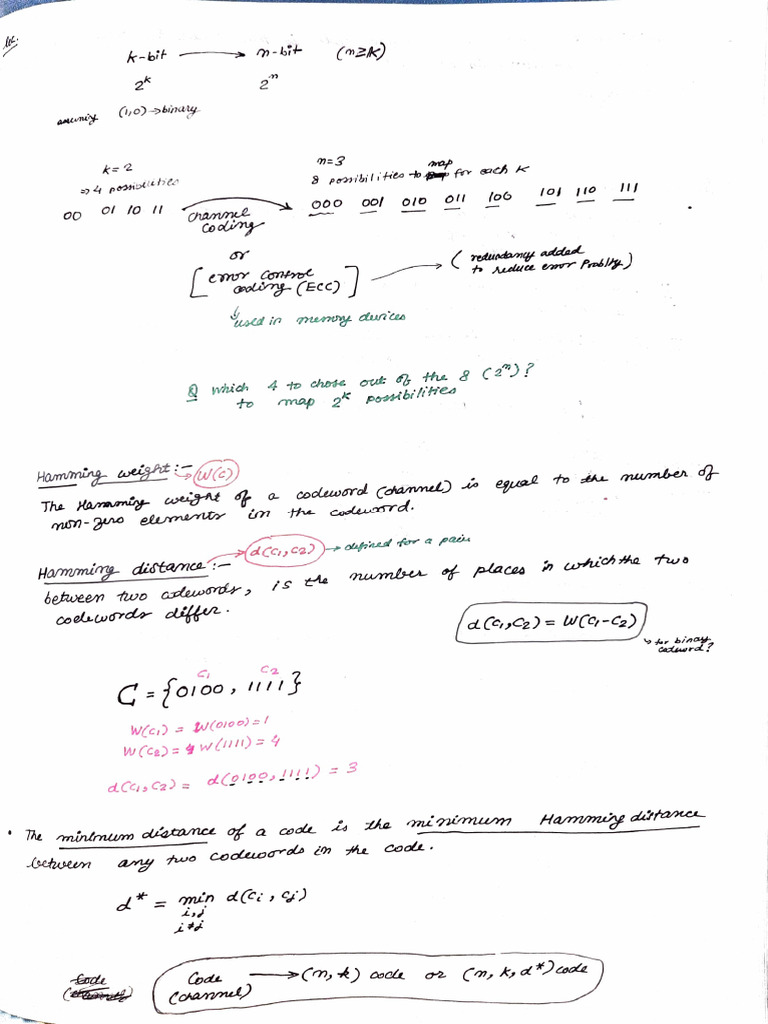 k-bit ⟶ n-bit (n≥k)
2^k 2^n
assuming (1,0) → binary
k = 2 n=3
⇒ 4 possibilities 8 possibilities to map for each k
00 01 10 11 channel coding 000 001 010 011 100 101 110 111
or
[error control coding (ECC)] → (redundancy added
to reduce error Problty)
↳ used in memory devices
Q which 4 to chose out of the 8 (2^n)?
to map 2^k possibilities
Hamming weight :- → W(c)
The Hamming weight of a codeword (channel) is equal to the number of
non-zero elements in the codeword.
Hamming distance :- → d(c1,c2) → defined for a pair
between two codewords, is the number of places in which the two
codewords differ.
d(c1,c2) = W(c1-c2)
↳ for binary
codeword?
c1 c2
C = {0100, 1111}
W(c1) = W(0100) = 1
W(c2) = W(1111) = 4
d(c1,c2) = d(0100, 1111) = 3
• The minimum distance of a code is the minimum Hamming distance
between any two codewords in the code.
d* = min d(ci, cj)
i,j
i≠j
Code ⟶ (n,k) code or (n, k, d*) code
(channel)